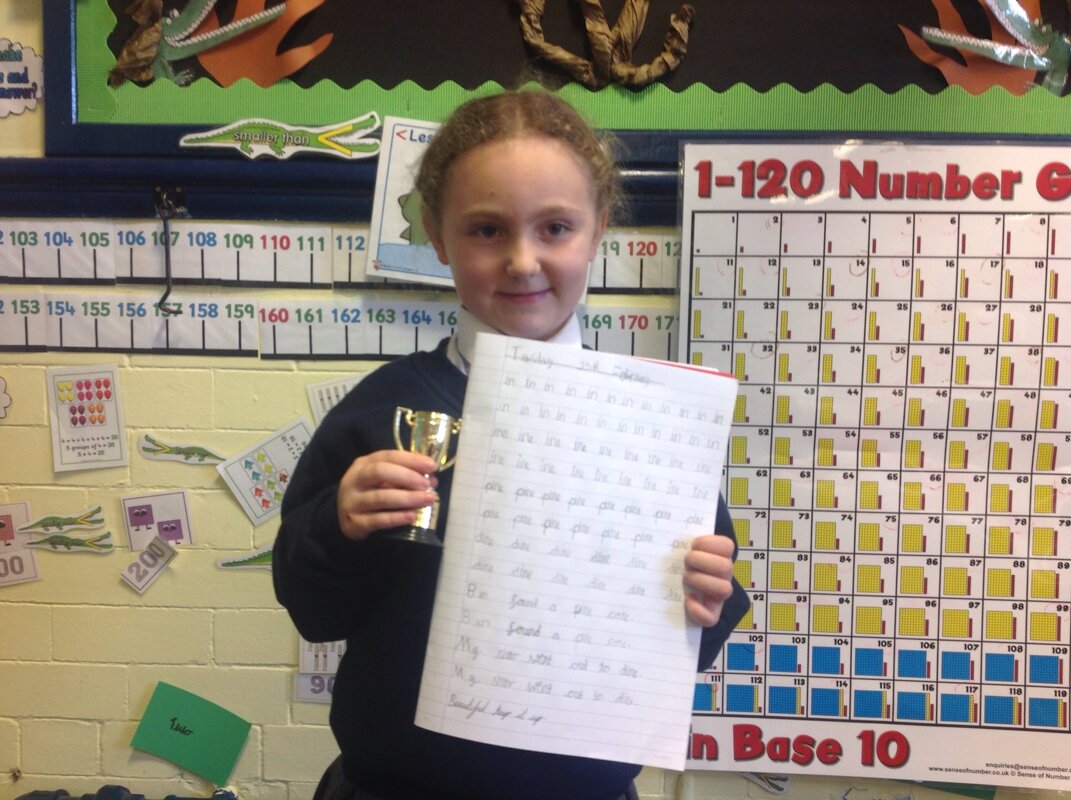 smaller than <
< Les
1-120 Number G
103 104 105 106 107 108 109 110 111 112 119 120
153 154 155 156 157 158 159 160 161 162 163 164 169 170
1 2 3 4 5 6 7 8
11 12 13 14 15 16 17 18
21 22 23 24 25 26 27 28
31 32 33 34 35 36 37 38
42 43 44 45 46 47 48
52 53 54 55 56 57 58
62 63 64 65 66 67 68 69
72 73 74 75 76 77 78 79
82 83 84 85 86 87 88 89
92 93 94 95 96 97 98 99
102 103 104 105 106 107 108 109
111 112 113 114 115 116 117 118 119
in Base 10
enquiries@senseofnumber.c
www.senseofnumber.co.uk © Sense of Number
Tuesday 25th February
in in in in in in in in in in in in
in in in in in in in in in in in in
ine ine ine ine ine ine ine ine ine
ine ine ine ine ine ine ine ine ine
pine pine pine pine pine pine pine pine
pine pine pine pine pine pine pine pine
dine dine dine dine dine
dine dine dine dine dine dine
Ben found a pine cone.
Ben found a pine cone.
My sister went out to dine.
My sister went out to dine.
Beautiful keep it up
5 groups of 4 = 20
5 x 4 = 20
200
00
90
Two